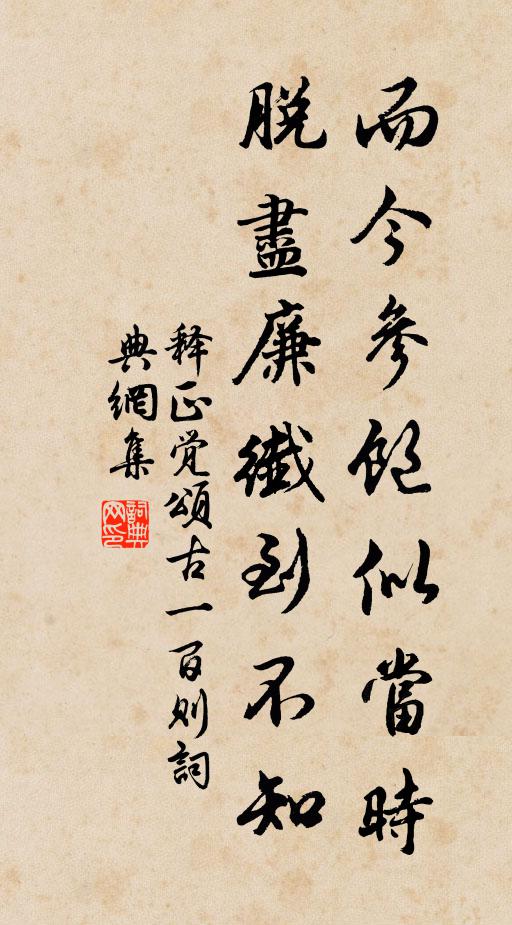 而今參飽似當時
脫盡廉纖到不知
释正觉頌古一百则詞
典網集
詞典网印